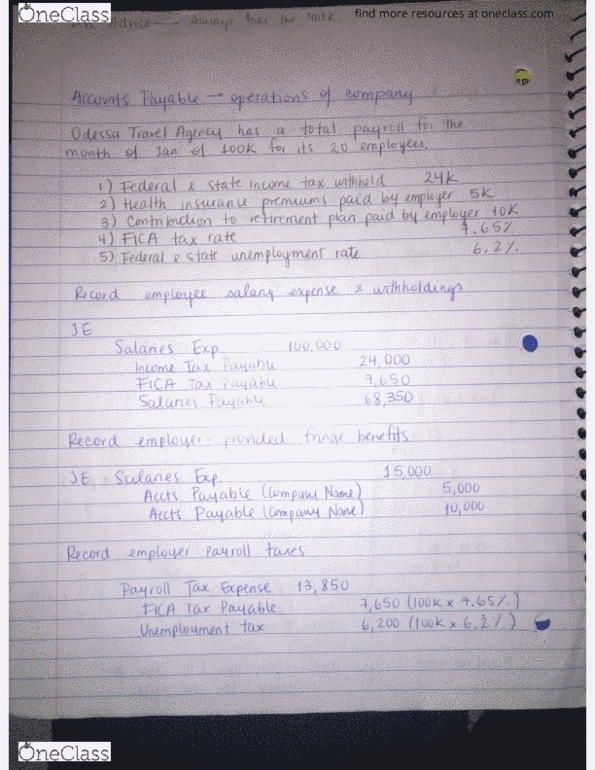 OneClass
find more resources at oneclass.com
Advice → Always take the 401K.
Accounts Payable → operations of company
Odessa Travel Agency has a total payroll for the
month of Jan of 100K for its 20 employees.
1) Federal & State income tax withheld 24K
2) Health insurance premiums paid by employer 5K
3) Contribution to retirement plan paid by employer 10K
4) FICA tax rate 7.65%
5) Federal & State unemployment rate 6.2%
Record employee salary expense & withholdings
JE
Salaries Exp 100,000
Income Tax Payable 24,000
FICA Tax Payable 7,650
Salaries Payable 68,350
Record employer-provided fringe benefits
JE Salaries Exp. 15,000
Accts Payable (Company Name) 5,000
Accts Payable (Company Name) 10,000
Record employer Payroll taxes
Payroll Tax Expense 13,850
FICA Tax Payable 7,650 (100K x 7.65%)
Unemployment tax 6,200 (100K x 6.2%)
OneClass